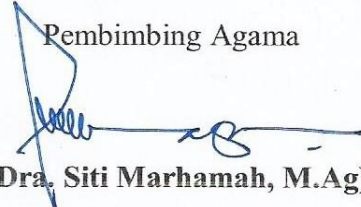 Pembimbing Agama
Dra. Siti Marhamah, M.Ag)